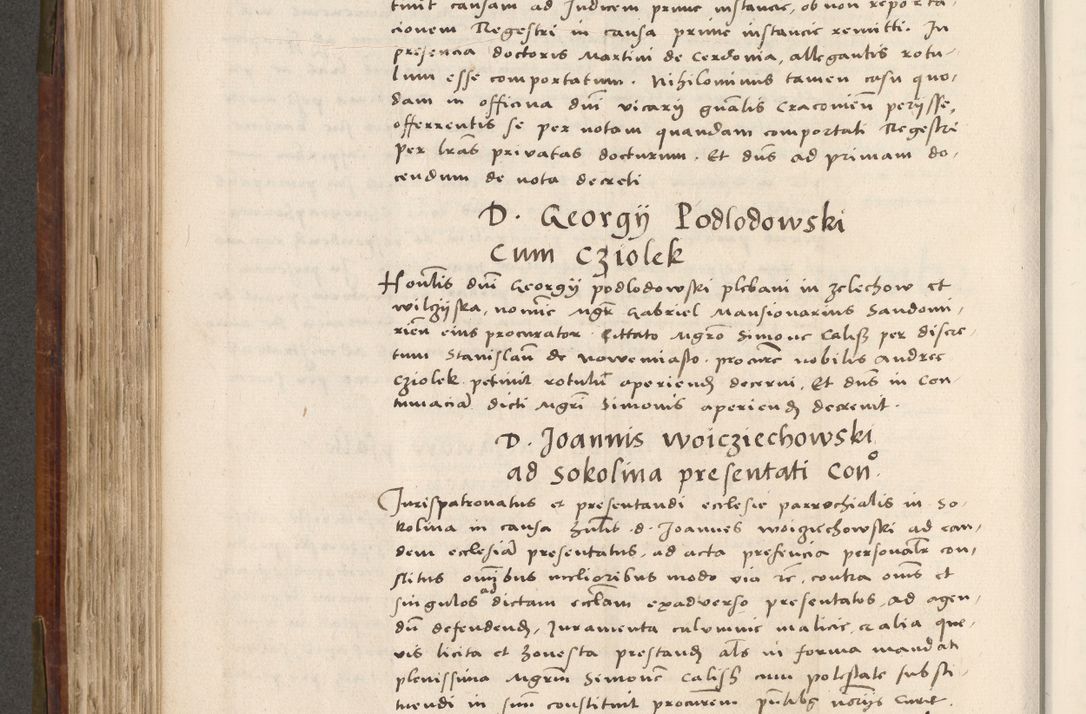 tinit causam ad Judicem prime instancie, ob non reporta-
cionem Regestri in causa prime instancie remitti. In
presencia doctoris Martini de Cerdonia, allegantis rotu-
lum esse comportatum. Nihilominus tamen casu quo-
dam in officina dni vicarij gnalis Cracovien perijsse,
offerrentis se per notam quandam comportati Regestri
per lras privatas docturum. Et dns ad primam do-
cendum de nota decreti
D. Georgij Podlodowski
Cum Cziolek
Honlis dni Georgij podlodowski plebani in zelechow et
wilzijska, nomine Mgr Gabriel Mansionarius Sandomi-
rien eius procurator. Cittato Mgro Simone Calisz per discre-
tum Stanislau de nowemiasto. procure nobilis Andree
Cziolek petivit rotulu aperiend decerni, Et dns in Con-
tumacia dicti Mgri Simonis aperiend decrevit.
D. Joannis woicziechowski
ad Sokolina presentati Cono.
Jurispatronatus et presentandi ecclesie parrochialis in So-
kolina in causa d. Joannes woicziechowski ad ean-
dem ecclesia presentatus, ad acta presencia personalr con-
stitus omibus melioribus modo via rc, contra omes et
singulos ad dictam ecclam exadverso presentatos, ad agen-
du defendend, Juramenta calumnie malicie, et alia que-
vis licita et honesta prestand als in forma mandati
plenissima Mgrm Simone Calish cum potestate substi-
tuendi in suu constituit procurem